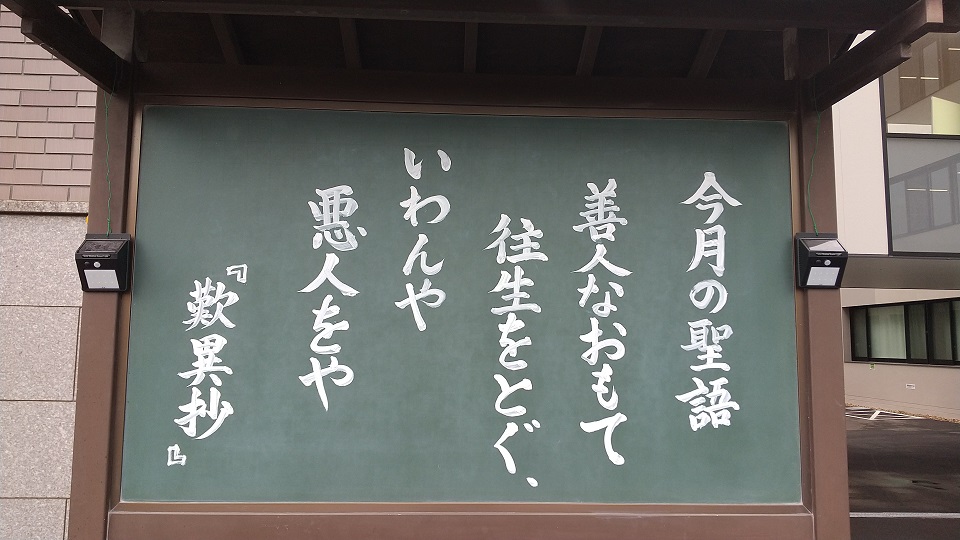 今月の聖語
善人なおもて
往生をとぐ、
いわんや
悪人をや
『歎異抄』